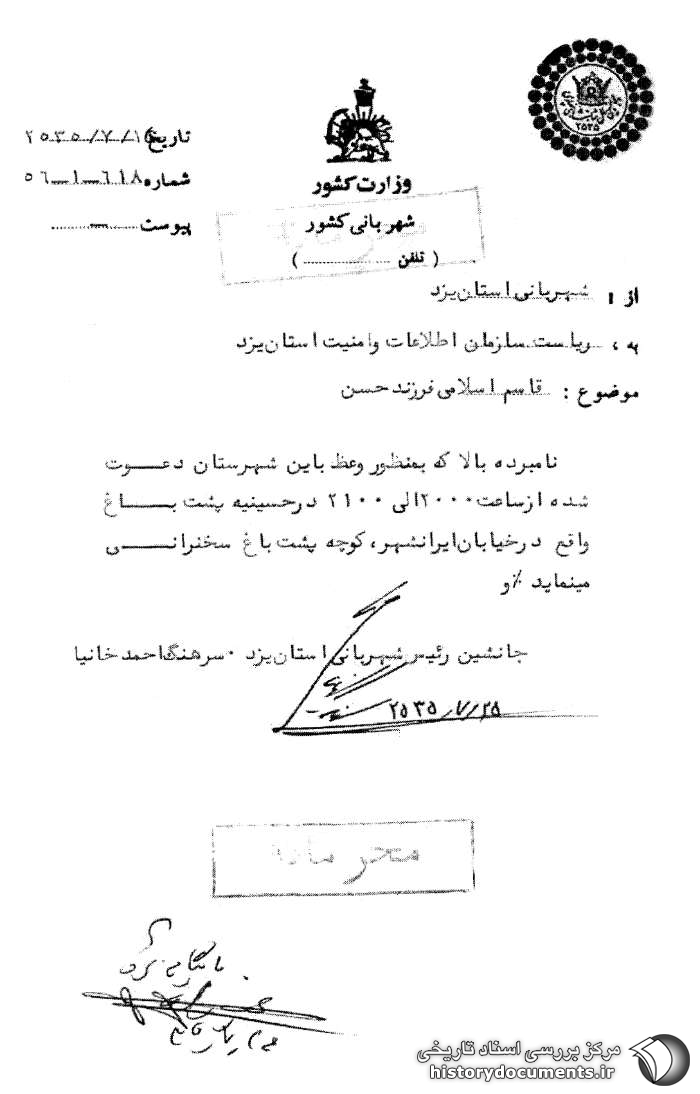 ۲۵۳۵
وزارت کشور
شهربانی کشور
( تلفن ............ )
تاریخ ۲۵۳۵/۷/۱۵
شماره ۶۱۸-۱-۵۶
پیوست ـــ
محرمانه
از : شهربانی استان یزد
به : ریاست سازمان اطلاعات وامنیت استان یزد
موضوع : قاسم اسلامی فرزند حسن
نامبرده بالا که بمنظور وعظ باین شهرستان دعوت
شده از ساعت ۲۰۰۰ الی ۲۱۰۰ در حسینیه پشت باغ
واقع در خیابان ایرانشهر، کوچه پشت باغ سخنرانی
مینماید ٪و
جانشین رئیس شهربانی استان یزد ۰ سرهنگ احمد خانیا
۲۵۳۵/۷/۲۵
محرمانه
بایگانی شود
مرکز بررسی اسناد تاریخی
historydocuments.ir